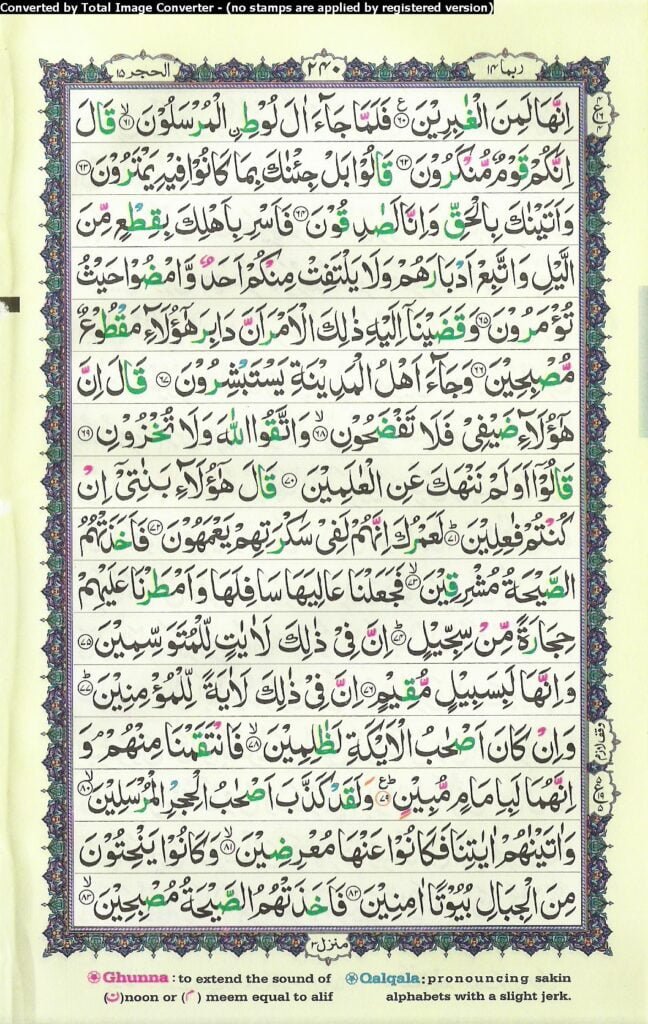 Converted by Total Image Converter - (no stamps are applied by registered version)
ربما ١٤
٢٤٠
الحجر ١٥
اِنَّهَا لَمِنَ الْغٰبِرِيْنَ ۠ ﴿۶۰﴾ فَلَمَّا جَآءَ اٰلَ لُوْطِ ۨ الْمُرْسَلُوْنَ ۙ ﴿۶۱﴾ قَالَ
اِنَّكُمْ قَوْمٌ مُّنْكَرُوْنَ ﴿۶۲﴾ قَالُوْا بَلْ جِئْنٰكَ بِمَا كَانُوْا فِيْهِ يَمْتَرُوْنَ ﴿۶۳﴾
وَاَتَيْنٰكَ بِالْحَقِّ وَاِنَّا لَصٰدِقُوْنَ ﴿۶۴﴾ فَاَسْرِ بِاَهْلِكَ بِقِطْعٍ مِّنَ
الَّيْلِ وَاتَّبِعْ اَدْبَارَهُمْ وَلَا يَلْتَفِتْ مِنْكُمْ اَحَدٌ وَّامْضُوْا حَيْثُ
تُؤْمَرُوْنَ ﴿۶۵﴾ وَقَضَيْنَاۤ اِلَيْهِ ذٰلِكَ الْاَمْرَ اَنَّ دَابِرَ هٰٓؤُلَآءِ مَقْطُوْعٌ
مُّصْبِحِيْنَ ﴿۶۶﴾ وَجَآءَ اَهْلُ الْمَدِيْنَةِ يَسْتَبْشِرُوْنَ ﴿۶۷﴾ قَالَ اِنَّ
هٰٓؤُلَآءِ ضَيْفِيْ فَلَا تَفْضَحُوْنِ ۙ ﴿۶۸﴾ وَاتَّقُوا اللّٰهَ وَلَا تُخْزُوْنِ ﴿۶۹﴾
قَالُوْۤا اَوَلَمْ نَنْهَكَ عَنِ الْعٰلَمِيْنَ ﴿۷۰﴾ قَالَ هٰٓؤُلَآءِ بَنٰتِيْۤ اِنْ
كُنْتُمْ فٰعِلِيْنَ ؕ ﴿۷۱﴾ لَعَمْرُكَ اِنَّهُمْ لَفِيْ سَكْرَتِهِمْ يَعْمَهُوْنَ ﴿۷۲﴾ فَاَخَذَتْهُمُ
الصَّيْحَةُ مُشْرِقِيْنَ ۙ ﴿۷۳﴾ فَجَعَلْنَا عَالِيَهَا سَافِلَهَا وَاَمْطَرْنَا عَلَيْهِمْ
حِجَارَةً مِّنْ سِجِّيْلٍ ؕ ﴿۷۴﴾ اِنَّ فِيْ ذٰلِكَ لَاٰيٰتٍ لِّلْمُتَوَسِّمِيْنَ ﴿۷۵﴾
وَاِنَّهَا لَبِسَبِيْلٍ مُّقِيْمٍ ﴿۷۶﴾ اِنَّ فِيْ ذٰلِكَ لَاٰيَةً لِّلْمُؤْمِنِيْنَ ؕ ﴿۷۷﴾
وَاِنْ كَانَ اَصْحٰبُ الْاَيْكَةِ لَظٰلِمِيْنَ ۙ ﴿۷۸﴾ فَانْتَقَمْنَا مِنْهُمْ ۘ وَ
اِنَّهُمَا لَبِاِمَامٍ مُّبِيْنٍ ؕ۠ ﴿۷۹﴾ وَلَقَدْ كَذَّبَ اَصْحٰبُ الْحِجْرِ الْمُرْسَلِيْنَ ۙ ﴿۸۰﴾
وَاٰتَيْنٰهُمْ اٰيٰتِنَا فَكَانُوْا عَنْهَا مُعْرِضِيْنَ ۙ ﴿۸۱﴾ وَكَانُوْا يَنْحِتُوْنَ
مِنَ الْجِبَالِ بُيُوْتًا اٰمِنِيْنَ ﴿۸۲﴾ فَاَخَذَتْهُمُ الصَّيْحَةُ مُصْبِحِيْنَ ۙ ﴿۸۳﴾
وقف لازم
منزل ٣
Ghunna : to extend the sound of
(ن) noon or (م) meem equal to alif
Qalqala: pronouncing sakin
alphabets with a slight jerk.